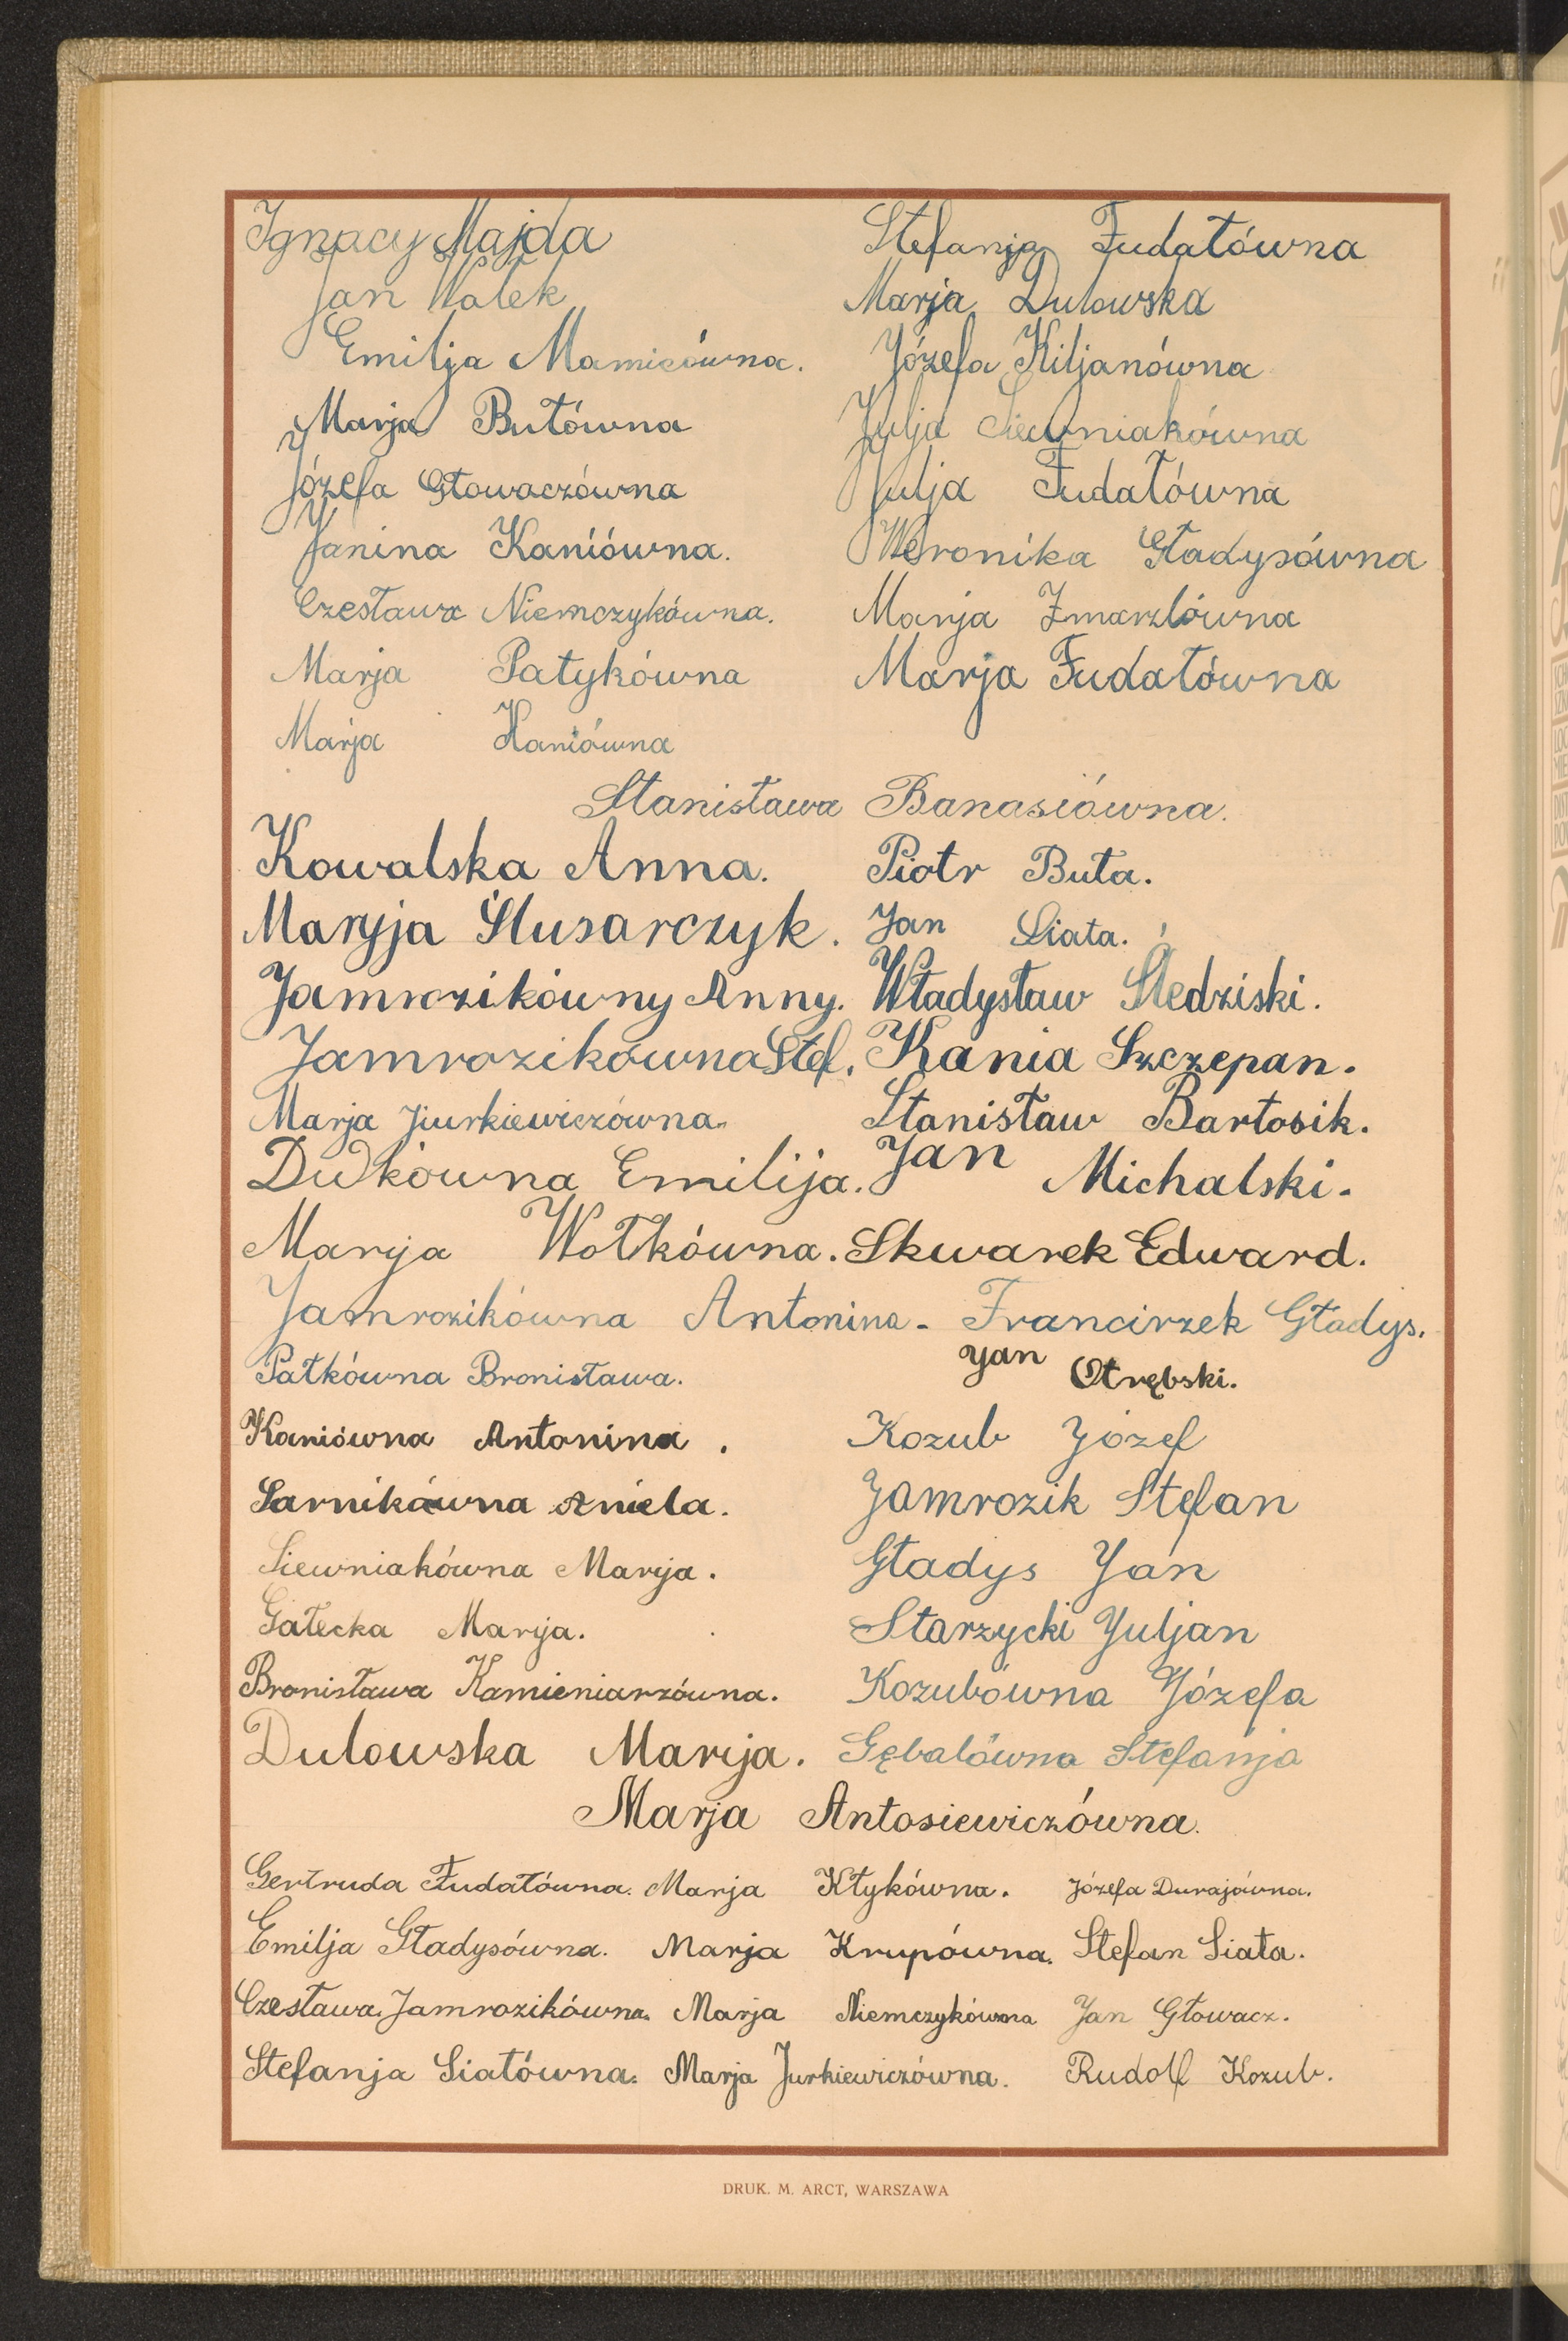 Ignacy Majda Stefanja Fudałówna
Jan Wałek Marja Dulowska
Emilja Mamicówna. Józefa Kiljanówna
Marja Butówna Julja Siewniakówna
Józefa Głowaczówna Julja Fudałówna
Janina Kaniówna. Weronika Gładysówna
Czesława Niemczykówna. Marja Zmarzlówna
Marja Patykówna Marja Fudałówna
Marja Kaniówna
Stanisława Banasiówna.
Kowalska Anna. Piotr Buta.
Maryja Ślusarczyk. Jan Siata.
Jamrozikówny Anny. Władysław Śledziski.
Jamrozikówna Stef. Kania Szczepan.
Marja Jiurkiewiczówna. Stanisław Bartosik.
Dudkówna Emilija. Jan Michalski.
Marija Wołkówna. Skwarek Edward.
Jamrozikówna Antonina - Franciszek Gładys.
Pałkówna Bronisława. Jan Otrębski.
Kaniówna Antonina. Kozub Józef
Sarnikówna Aniela. Jamrozik Stefan
Siewniakówna Marija. Gładys Jan
Gałecka Marija. Starzycki Juljan
Bronisława Kamieniarzówna. Kozubówna Józefa
Dulowska Marija. Gębalówna Stefanja
Marja Antosiewiczówna.
Gertruda Fudałówna. Marja Kłykówna. Józefa Durajówna.
Emilja Gładysówna. Marja Krupówna. Stefan Siata.
Czesława Jamrozikówna. Marja Niemczykówna Jan Głowacz.
Stefanja Siatówna. Marja Jurkiewiczówna. Rudolf Kozub.
DRUK. M. ARCT, WARSZAWA